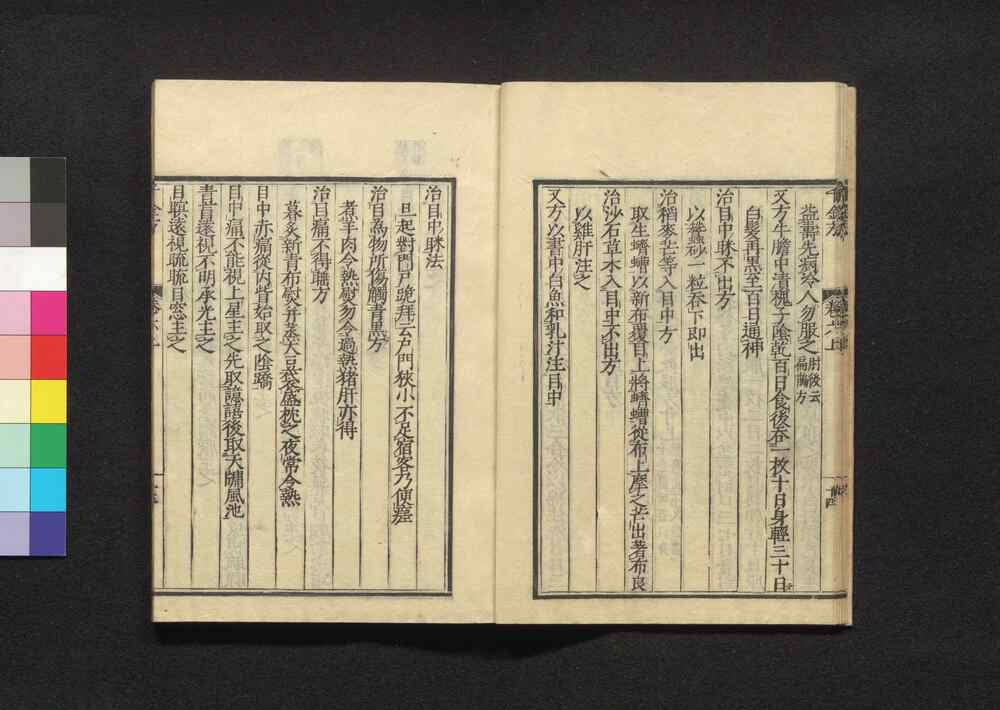 益壽先病冷人勿服之 肘後云扁鵲方
又方牛膽中漬槐子陰乾百日食後吞一枚十日身輕三十日
白髮再黑至百日通神
治目中眯不出方
以蠶砂一粒吞下即出
治稻麥芒等入目中方
取生蠐螬以新布覆目上將蠐螬從布上摩之芒出著布良
治沙石草木入目中不出方
以雞肝注之
又方以書中白魚和乳汁注目中
治目中眯法
旦起對門戶跪拜云戶門狹小不足宿客乃便瘥
治目為物所傷觸青黑方
煮羊肉令熱熨勿令過熱猪肝亦得
治目痛不得睡方
暮炙新青布熨并蒸大豆袋盛枕之夜常令熱
目中赤痛從內眥始取之陰蹻
目中痛不能視上星主之先取譩譆後取天牖風池
青盲遠視不明承光主之
目瞑遠視䀮䀮目窗主之